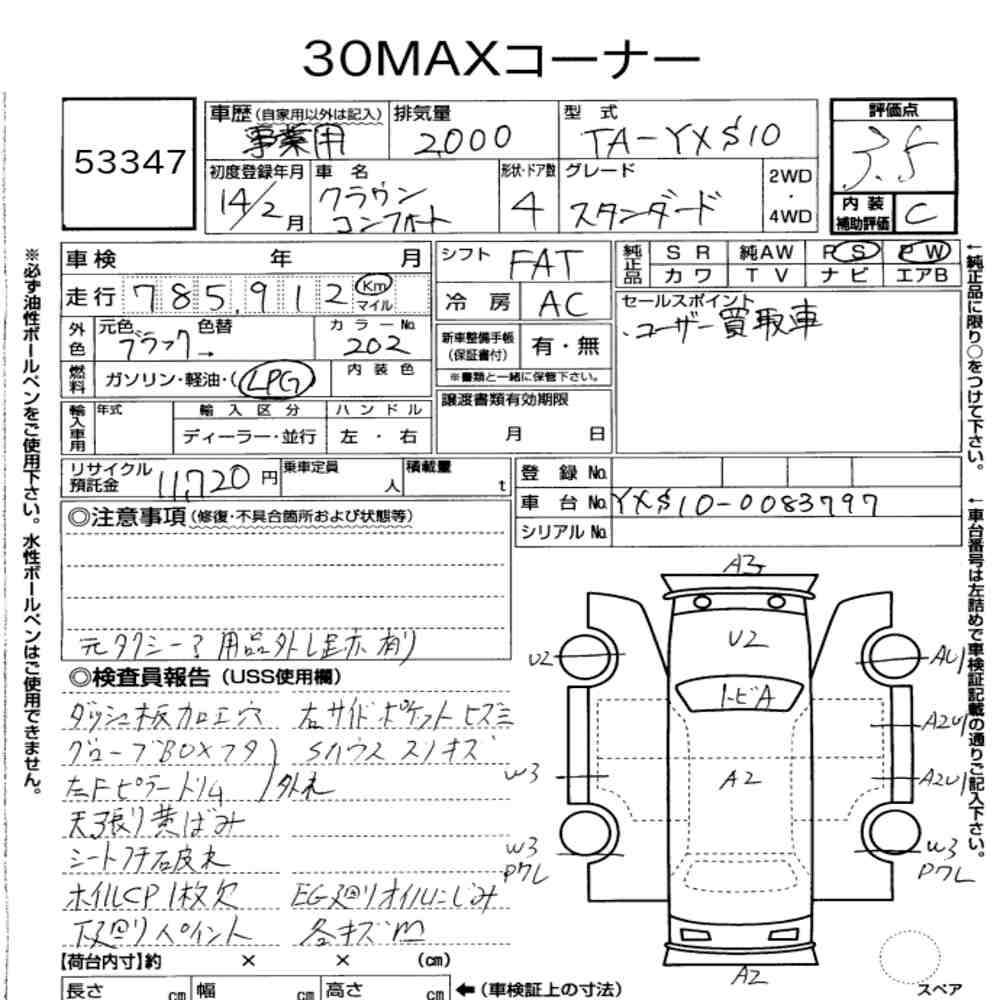 30MAXコーナー
53347
車歴 (自家用以外は記入) 事業用
排気量 2,000
型式 TA-YXS10
評価点 3.5
内装補助評価 C
初度登録年月 14/2月
車名 クラウン コンフォート
形状・ドア数 4
グレード スタンダード
2WD・4WD
車検 年 月
走行 785,912 Km マイル
外色 元色 ブラック → 色替
カラーNo. 202
燃料 ガソリン・軽油・(LPG)
内装色
輸入車用 年式
輸入区分 ディーラー・並行
ハンドル 左・右
シフト FAT
冷房 AC
新車整備手帳(保証書付) 有・無
※書類と一緒に保管下さい。
譲渡書類有効期限
月 日
純正品 SR 純AW PS PW
カワ TV ナビ エアB
セールスポイント
・ユーザー買取車
リサイクル預託金 11,720円
乗車定員 人
積載量 t
登録No.
車台No. YXS10-0083797
シリアルNo.
◎注意事項 (修復・不具合箇所および状態等)
元タクシー? 用品外し跡有り
◎検査員報告 (USS使用欄)
ダッシュ板加工穴 右サイドポケットヒズミ
グローブBOXフタ Sハウス スリキズ
左Fピラートリム 外れ
天張り黄ばみ
シートフチ石皮れ
ホイルCP1枚欠 EG廻りオイルにじみ
下廻りペイント 各キズm
【荷台内寸】約 × × (cm)
長さ cm 幅 cm 高さ cm
←(車検証上の寸法)
A3
U2
トビA
A2
A2
U2
W3
W3
Pクレ
AU1
A2U1
A2U1
W3
Pクレ
スペア
※必ず油性ボールペンをご使用下さい。水性ボールペンはご使用できません。
←純正品に限り○をつけて下さい。
←車台番号は左詰めで車検証記載の通りご記入下さい。